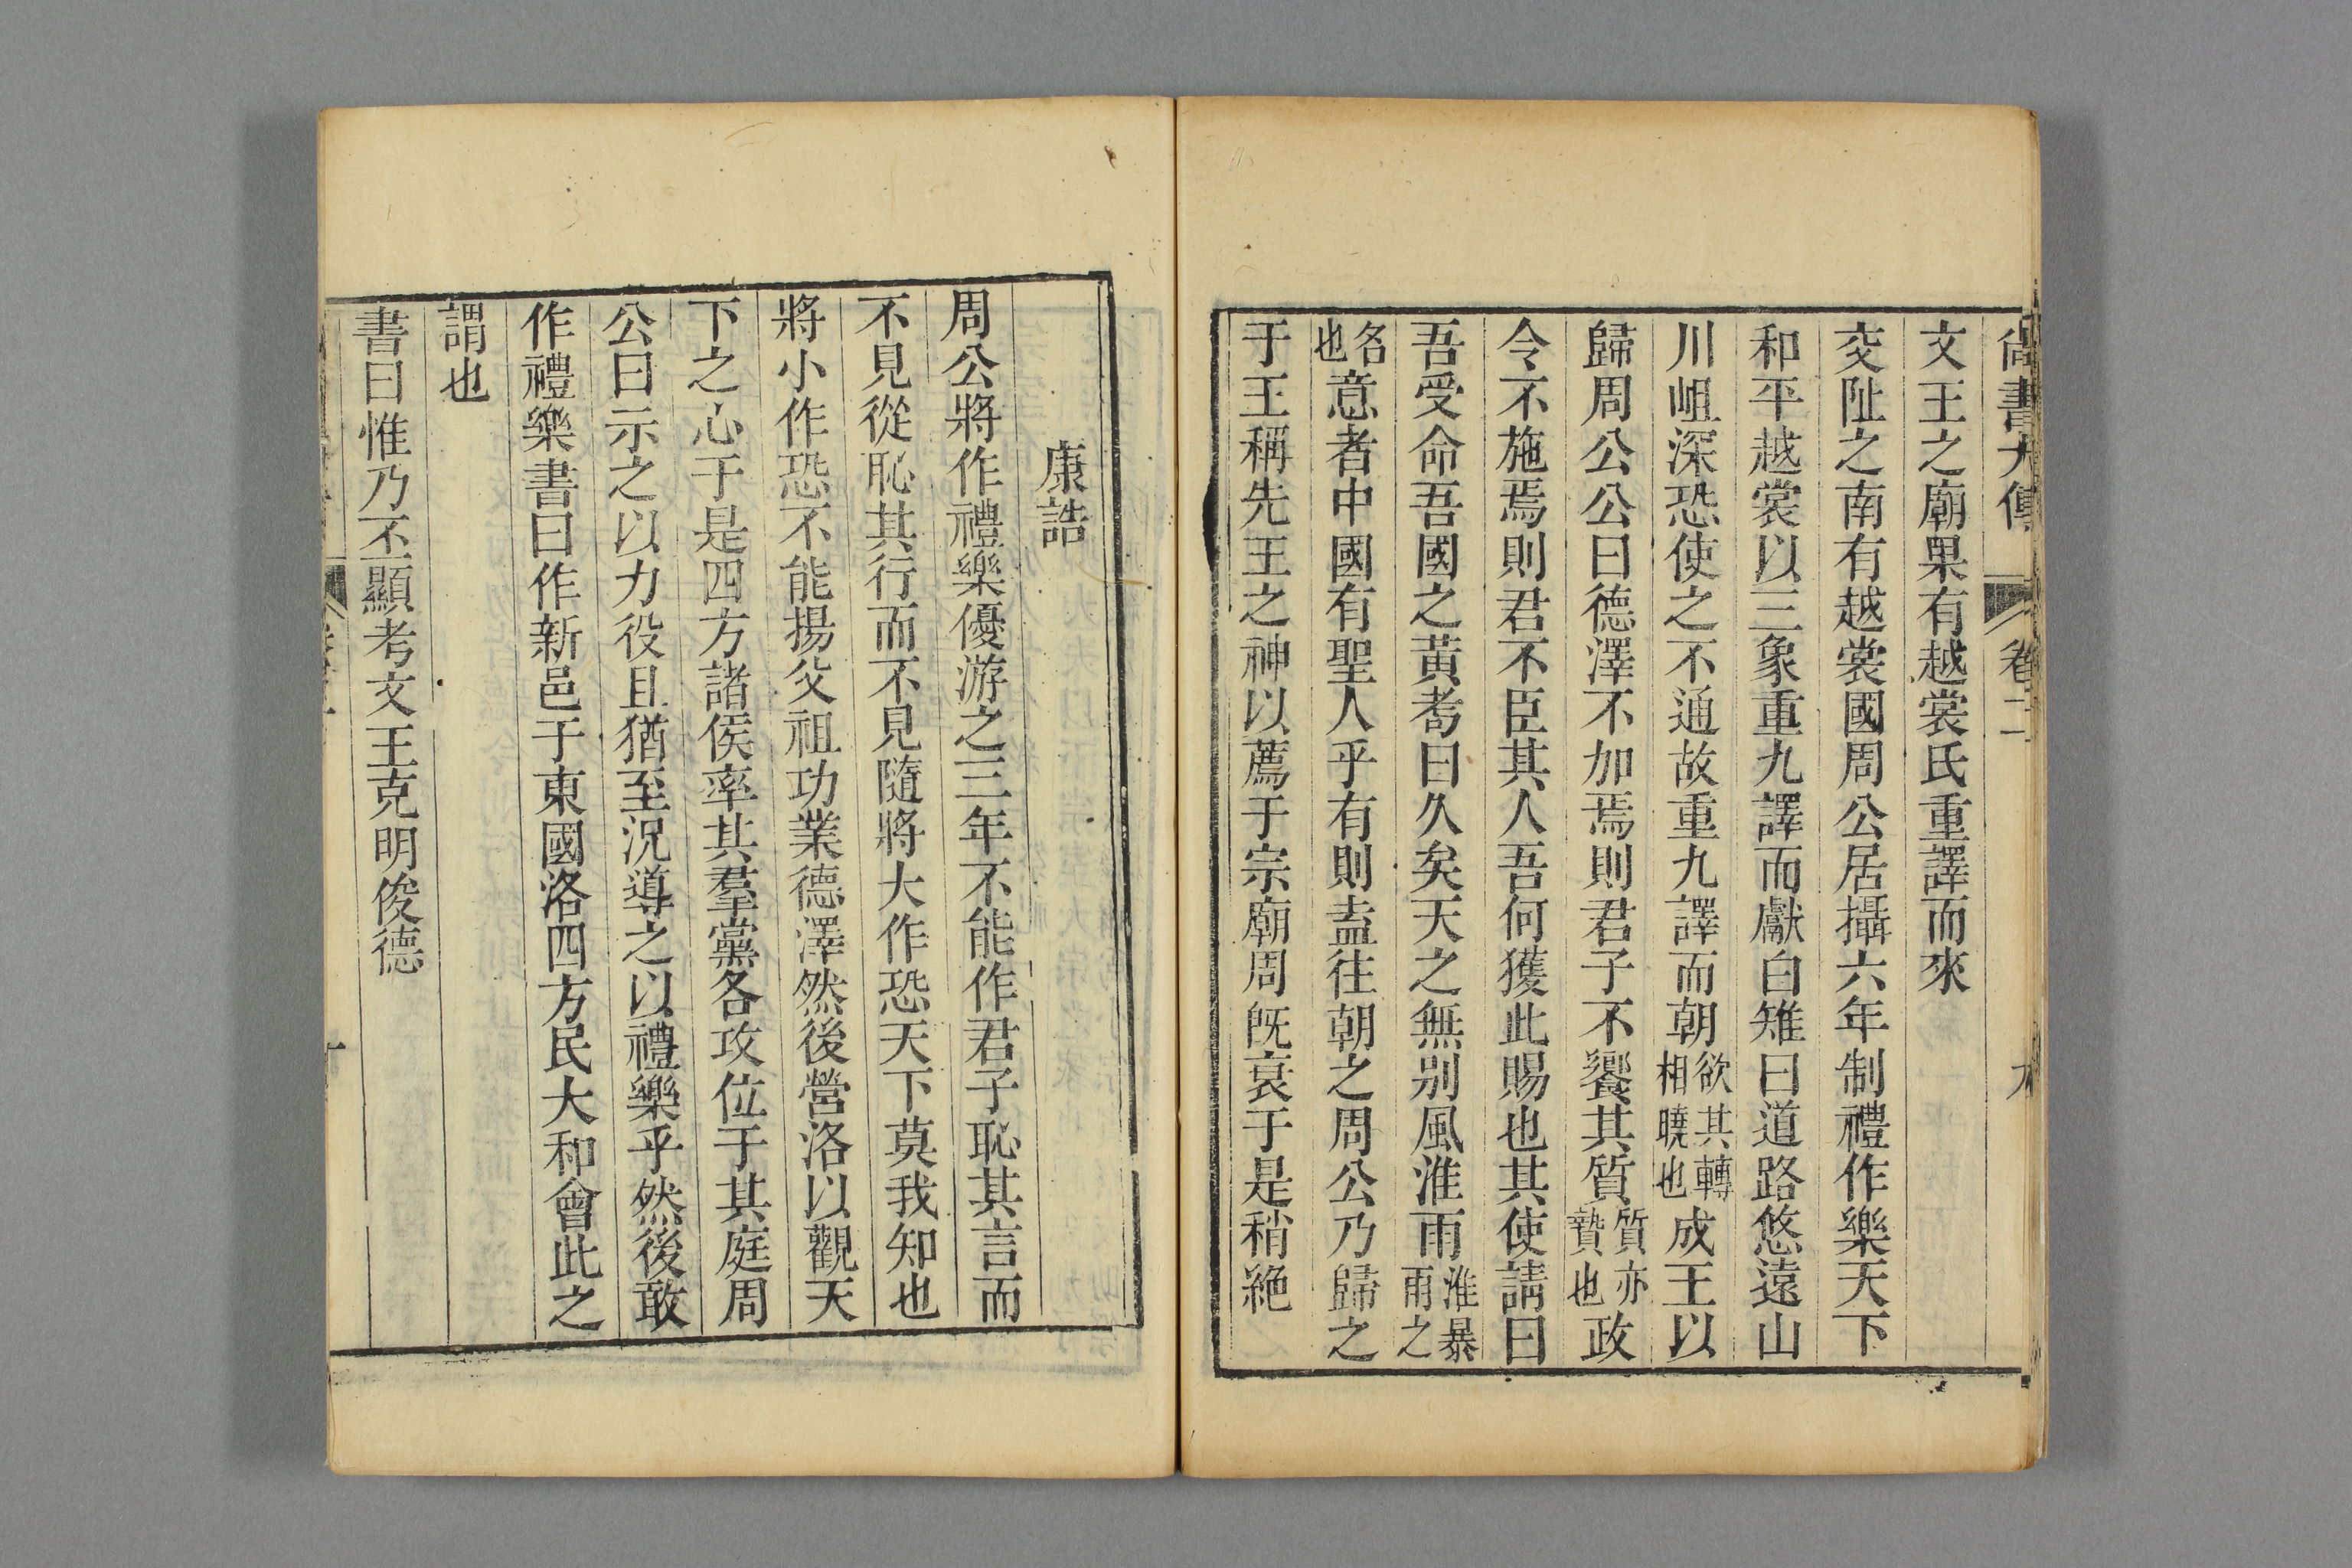 尚書大傳 卷二 九
文王之廟果有越裳氏重譯而來
交阯之南有越裳國周公居攝六年制禮作樂天下
和平越裳以三象重九譯而獻白雉曰道路悠遠山
川岨深恐使之不通故重九譯而朝欲其轉相曉也成王以
歸周公公曰德澤不加焉則君子不饗其質質亦贄也政
令不施焉則君不臣其人吾何獲此賜也其使請曰
吾受命吾國之黃耇曰久矣天之無别風淮雨淮暴雨之
名也意者中國有聖人乎有則盍往朝之周公乃歸之
于王稱先王之神以薦于宗廟周旣衰于是稍絶
康誥
周公將作禮樂優游之三年不能作君子恥其言而
不見從恥其行而不見隨將大作恐天下莫我知也
將小作恐不能揚父祖功業德澤然後營洛以觀天
下之心于是四方諸侯率其羣黨各攻位于其庭周
公曰示之以力役且猶至況導之以禮樂乎然後敢
作禮樂書曰作新邑于東國洛四方民大和會此之
謂也
書曰惟乃丕顯考文王克明俊德